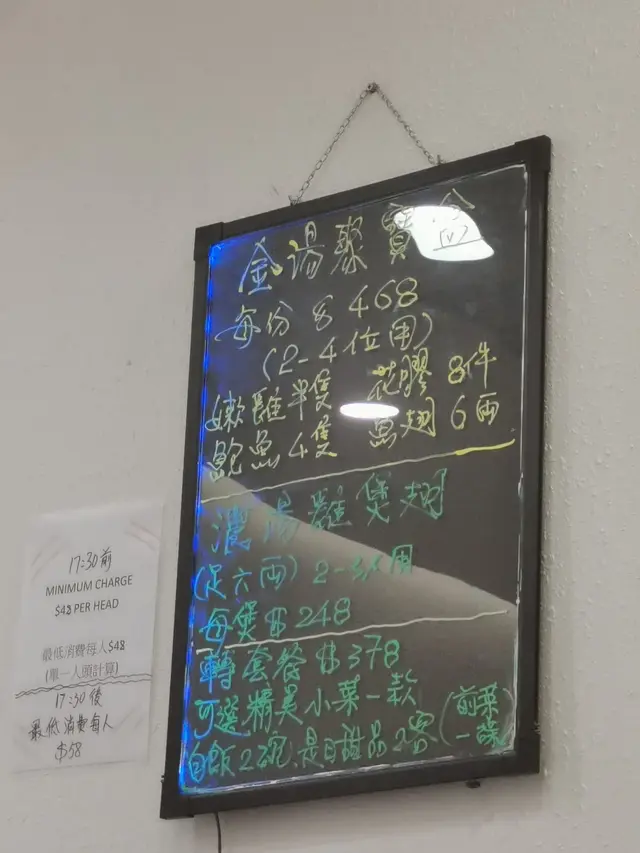 金湯聚寶盆
每份 $ 468
(2-4位用)
嫩雞半隻 花膠 8件
鮑魚4隻 魚翅 6両
濃湯雞煲翅
(足六両) 2-3人用
每煲 $ 248
轉套餐 $ 378
可選精美小菜一款
白飯2碗、是日甜品2客(前菜一碟)
17:30前
MINIMUM CHARGE
$48 PER HEAD
最低消費每人$48
(單一人頭計算)
17:30後
最低消費每人
$58